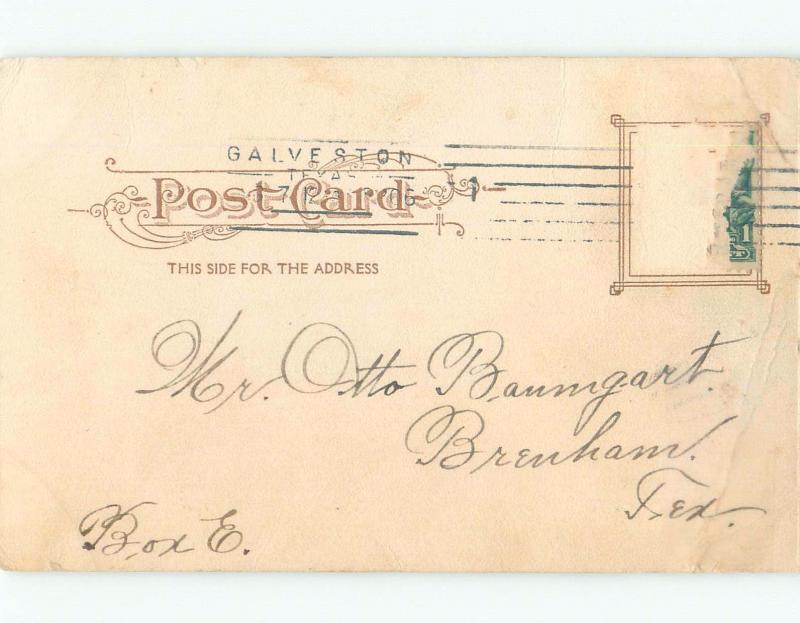 GALVESTON
TEXAS
Post Card
1
THIS SIDE FOR THE ADDRESS
1
Mr. Otto Baumgart.
Brenham.
Tex.
Box E.